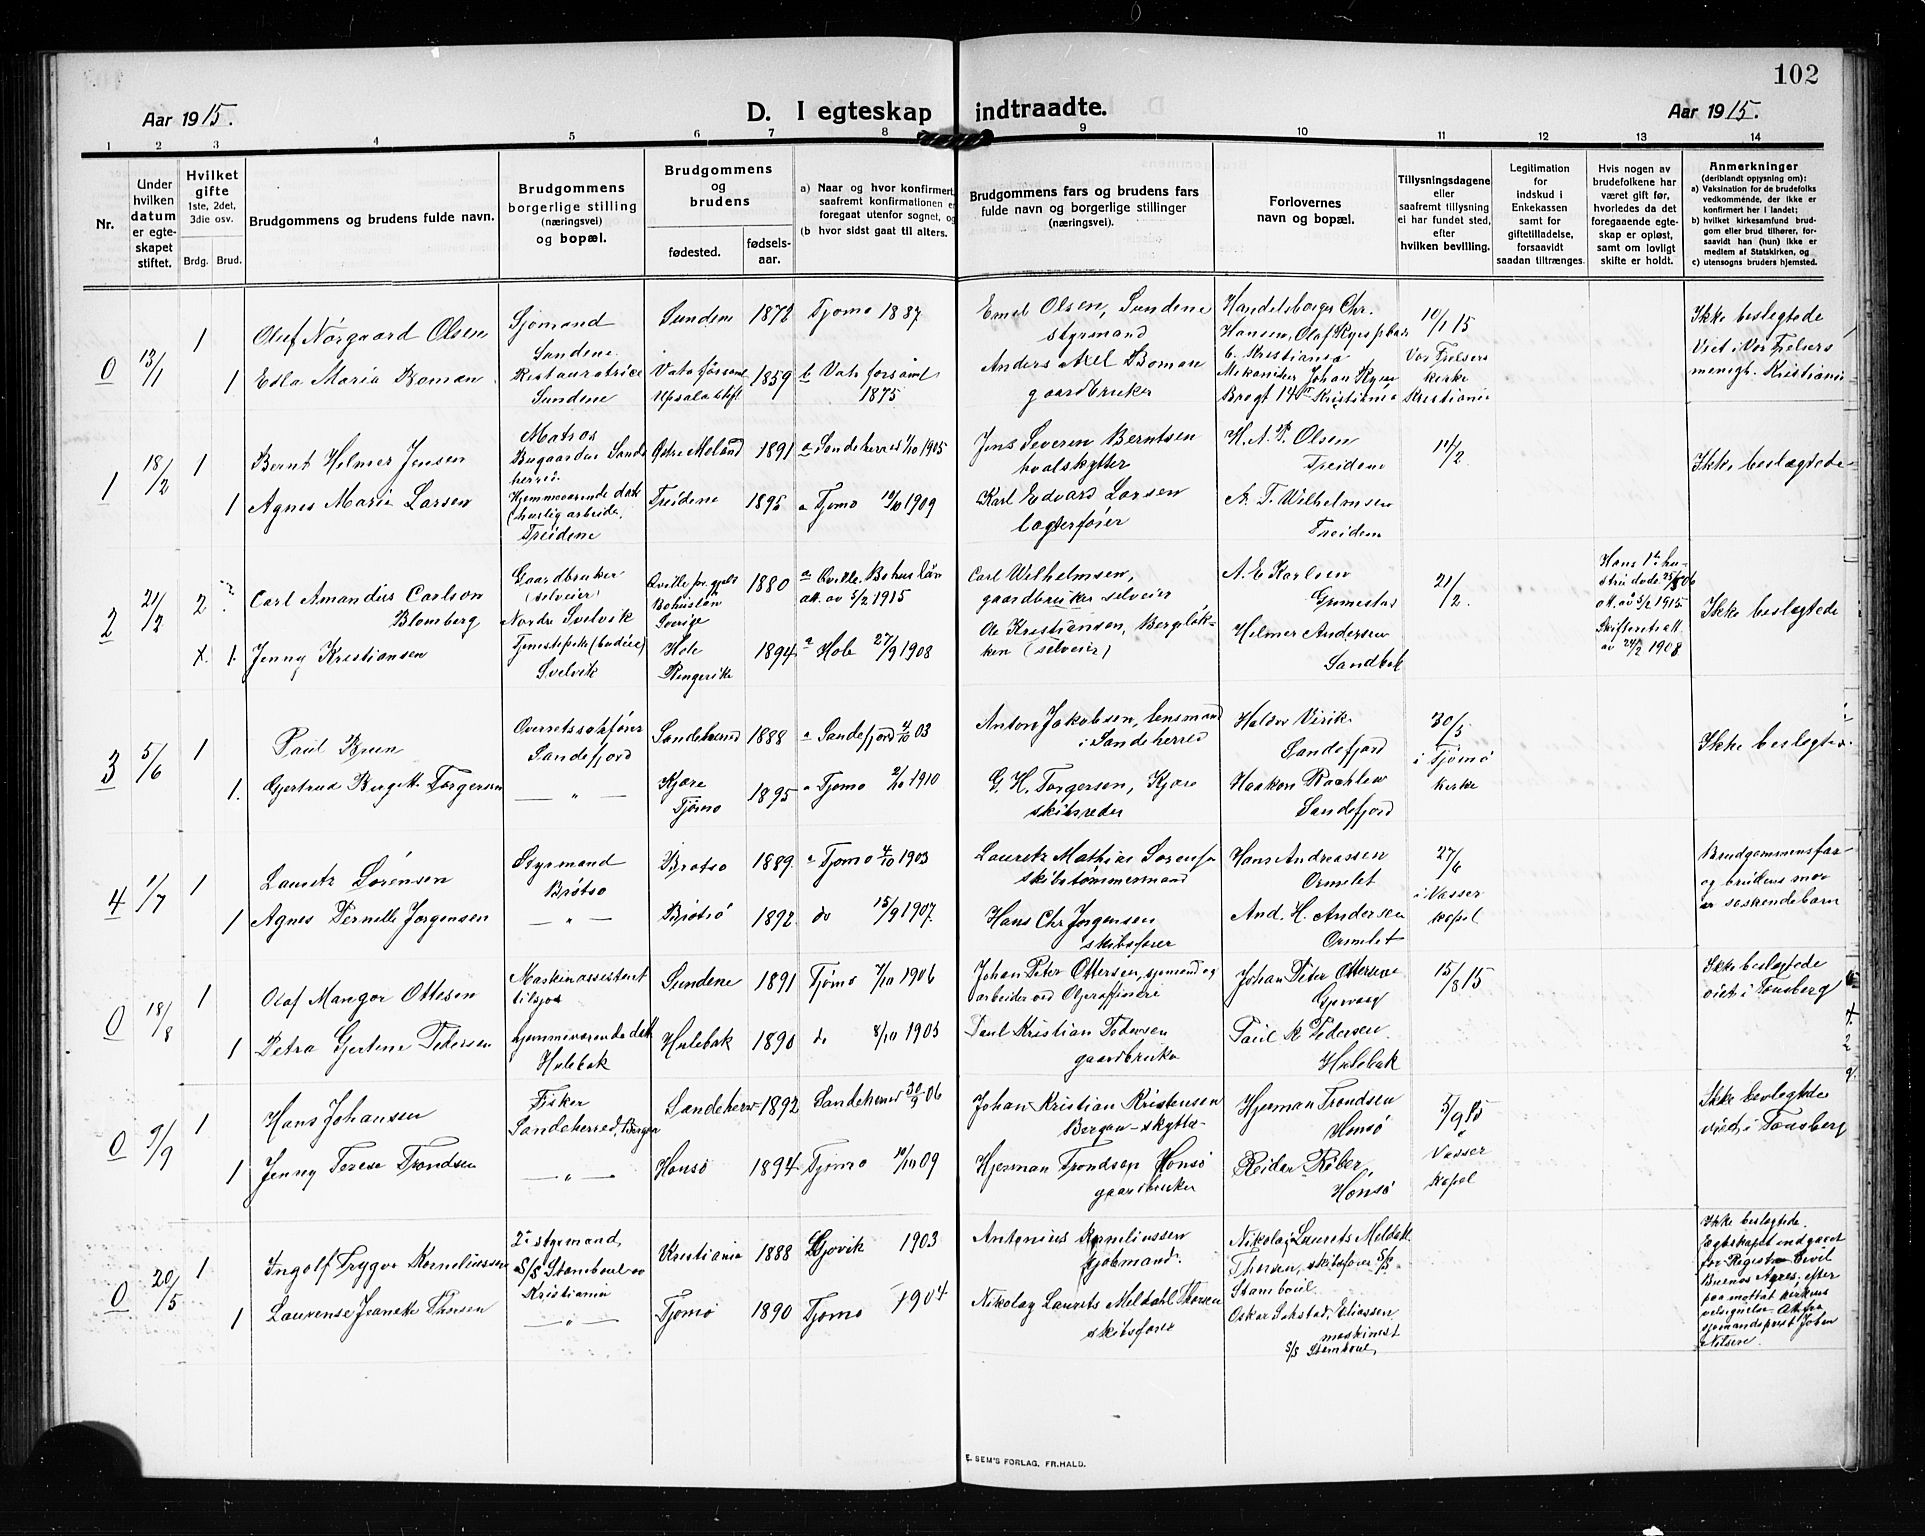 102
Aar 1915.
D. I egteskap indtraadte.
Aar 1915.
1 2 3 4 5 6 7 8 9 10 11 12 13 14
Nr.
Under hvilken datum er egteskapet stiftet.
Hvilket gifte 1ste, 2det, 3die osv.
Brdg. Brud.
Brudgommens og brudens fulde navn.
Brudgommens borgerlige stilling (næringsvei) og bopæl.
Brudgommens og brudens
fødested.
fødselsaar.
a) Naar og hvor konfirmert, saafremt konfirmationen er foregaat utenfor sognet, og
(b hvor sidst gaat til alters.
Brudgommens fars og brudens fars fulde navn og borgerlige stillinger (næringsvei).
Forlovernes navn og bopæl.
Tillysningsdagene eller saafremt tillysning ei har fundet sted, efter hvilken bevilling.
Legitimation for indskud i Enkekassen samt for giftetilladelse, forsaavidt saadan tiltrænges.
Hvis nogen av brudefolkene har været gift før, hvorledes da det foregaaende egteskap er opløst, samt om lovligt skifte er holdt.
Anmerkninger
(deriblandt opysning om):
a) Vaksination for de brudefolks vedkommende, der ikke er konfirmert her i landet;
b) hvilket kirkesamfund brudgom eller brud tilhører, forsaavidt han (hun) ikke er medlem af Statskirken, og
c) utensogns bruders hjemsted.
0 13/1 1 Oluf Nörgaard Olsen Sjömand Sundene Sundene 1872 Tjømø 1887 Emil Olsen, Sundene styrmand Handelsborger Chr. Hansen, Olaf Ryes pl 6. Kristiania 10/1 15 Ikke beslegtede
1 Edla Maria Boman Restauratrice Sundene Upsala stift 1859 b 1875 Anders Axel Boman gaardbruker Mekaniker Johan Kristiania Vor Frelsers kirke Kristiania Viet i Vor Frelsers menigh. Kristiania
1 18/2 1 Bernt Hilmer Jensen Matros Bugaarden Sandeherred Østre Moland 1891 a Sandeherred 1/10 1905 Jens Severin Berntsen hvalskytter H. A. P. Olsen Treidene 14/2 Ikke beslægtede
1 Agnes Marie Larsen Hjemmeværende dat. (huslig arbeide. Treidene Treidene 1895 a Tjømø 10/10 1909 Karl Edvard Larsen A. T. Wilhelmsen Treidene
2 21/2 2 Carl Amandus Carlson Blomberg Gaardbruker (selveier) Nordre Svelvik Qville Bohuslän Sverige 1880 a Qville, Bohuslän att. av 5/2 1915 Carl Wilhelmsen, gaardbruker selveier A. E. Karlsen Grimestad 21/2. Hans 1ste hustru døde 06 att. av 5/2 1915 Skifteretsatt. av 24/2 1908 Ikke beslegtede
1. Jenny Kristiansen Tjenestepike (budeie) Svelvik Hole Ringerike 1894 a Hole 27/9 1908 Ole Kristiansen, (selveier) Helmer Andersen Sandbæk
3 5/6 1 Paul Bruun Overretssakfører Sandefjord Sandeherred 1888 a Sandefjord 4/10 03 Anton Jakobsen, lensmand i Sandeherred Haldor Virik Sandefjord 30/5 i Tjømø kirke Ikke beslegted.
1. Gjertrud Birgit Torgersen — " — Kjære Tjømø 1895 a Tjømø 2/10 1910 G. H. Torgersen, Kjære skibsreder Haakon Sandefjord
4 1/7 1 Lauritz Sörensen Styrmand Brøtsø Brøtsø 1889. a Tjømø 4/10 1903 Lauritz Mathias Sørensen skibstømmermand Hans Andreassen Ormelet 27/6 i Vasser kapel Brudgommens far og brudens mor er søskendebarn
1 Agnes Pernelle Jørgensen — " — Brøtsø 1892 do 15/9 1907. Hans Chr Jørgensen skibsfører And. H. Andersen Ormelet
0 18/8 1 Olaf Mangor Ottesen Maskinassistent tilsjøs Sundene 1891 Tjømø 7/10 1906 Johan Peter Ottersen, sjømand og arbeider ved Oljeraffineri Johan Peter Ottersen 15/8 15 Ikke beslegtede viet i Tønsberg
1 Petra Gjertine Pedersen hjemmeværende datt Hulebak Hulebak 1890 do 8/10 1905 Paul Kristian Pedersen gaardbruker Paul K Pedersen Hulebak
0 9/9 1 Hans Johansen Fisker Sandeherred, Bergan Sandeherred 1892 Sandeherred 30/9 06 Johan Kristian Kristensen Bergan – skytter Hjerman Trondsen Hønsø 5/9 15 Vasser kapel Ikke beslegtede viet i Tønsberg
1 Jenny Terese Trondsen — " — Hønsø 1894 Tjømø 10/10 09 Hjerman Trondsen Hønsø gaardbruker Reidar Røber, Hønsø
0 20/5 1 Ingolf Trygve Korneliussen 2. styrmand, S/S Stamboul av Kristiania Kristiania 1888 Gjøvik 1903 Antonius Korneliussen kjøbmand. Nikolay Laurits Meldahl Thorsen, skibsfører S/S Stamboul Ikke beslegtede. Egteskapet indgaaet for Registro Civil Buenos Ayres, efter paa mottat kirkens velsignelse. Att fra sjømandsprest Johan Nilsen.
1 Laurense Jeanette Thorsen — " — Tjømø 1890 Tjømø 1904 Nikolay Laurits Meldahl Thorsen skibsfører Oskar Eliassen maskinist S/S Stamboul,
E. SEM'S FORLAG, FR.HALD.